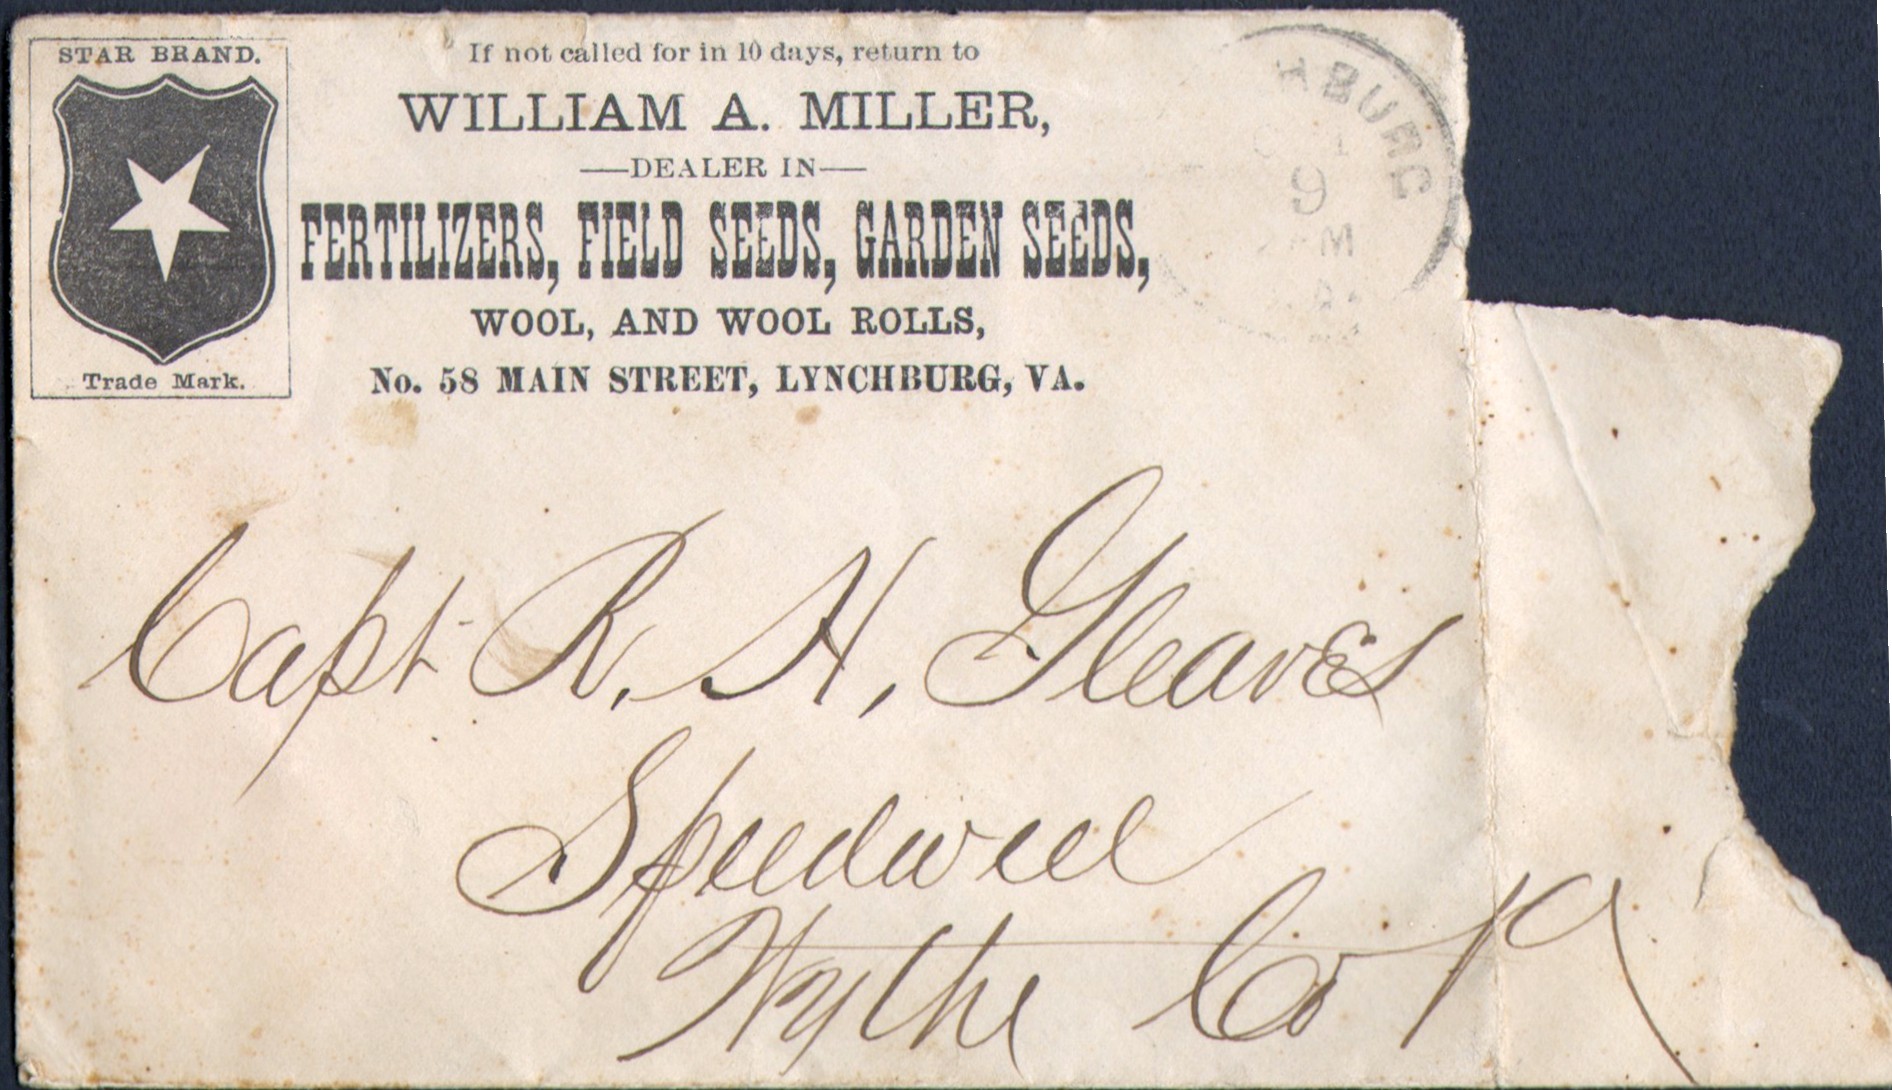 STAR BRAND.
Trade Mark.
If not called for in 10 days, return to
WILLIAM A. MILLER,
—DEALER IN—
FERTILIZERS, FIELD SEEDS, GARDEN SEEDS,
WOOL, AND WOOL ROLLS,
No. 58 MAIN STREET, LYNCHBURG, VA.
HBURG
9
Capt R. H. Gleaves
Speedwell
Wythe Co Va